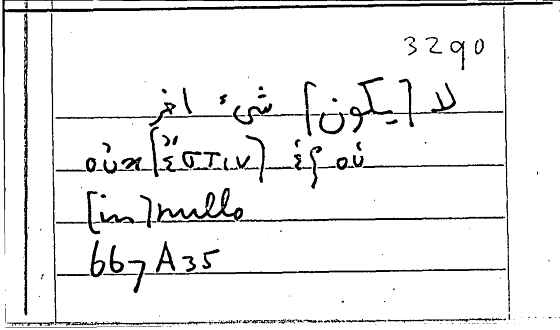 3290
لا [يكون] شيء اخر
οὐκ [ἔστιν] ἐξ οὗ
[in] nullo
667 A 35